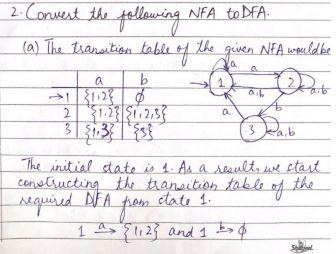 2. Convert the following NFA to DFA.
(a) The transition table of the given NFA would be
a b
→1 {1,2} ϕ
2 {1,2} {1,2,3}
3 {1,3} {3}
a
a
1
2
a,b
a,b
a
b
3
a,b
The initial state is 1. As a result, we start
constructing the transition table of the
required DFA from state 1.
1 a→ {1,2} and 1 b→ ϕ